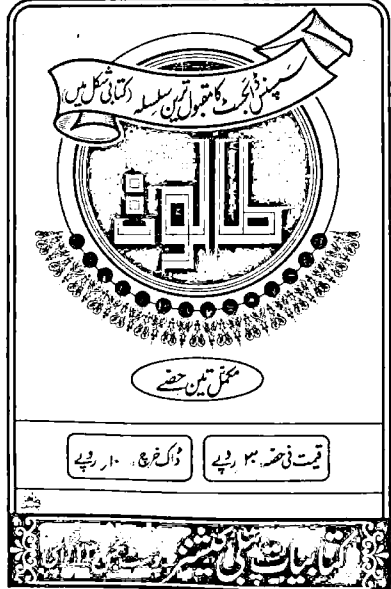 سسپنس ڈائجسٹ کا مقبول ترین سلسلہ (کتابی شکل میں)
طالوت
مکمل تین حصے
قیمت فی حصہ، ۳۰ روپے
ڈاک خرچ، ۱۰ روپے
کتابیات پبلی کیشنز